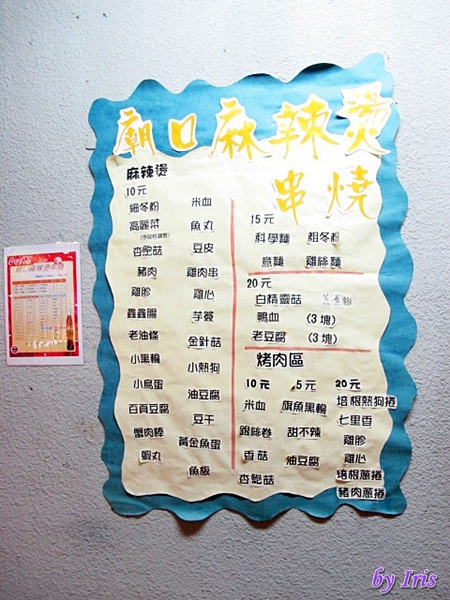 廟口麻辣燙
串燒
麻辣燙
10元
細冬粉
高麗菜
杏鮑菇
豬肉
雞胗
鑫鑫腸
老油條
小黑輪
小鳥蛋
百頁豆腐
蟹肉棒
蝦丸
米血
魚丸
豆皮
雞肉串
雞心
芋簽
金針菇
小熱狗
油豆腐
豆干
黃金魚蛋
魚板
15元
科學麵 粗冬粉
意麵 雞絲麵
20元
白精靈菇
鴨血 (3塊)
老豆腐 (3塊)
烤肉區
10元
米血
銀絲卷
香菇
杏鮑菇
5元
旗魚黑輪
甜不辣
油豆腐
20元
培根熱狗捲
七里香
雞胗
雞心
培根蔥捲
豬肉蔥捲
Coca-Cola
by Iris